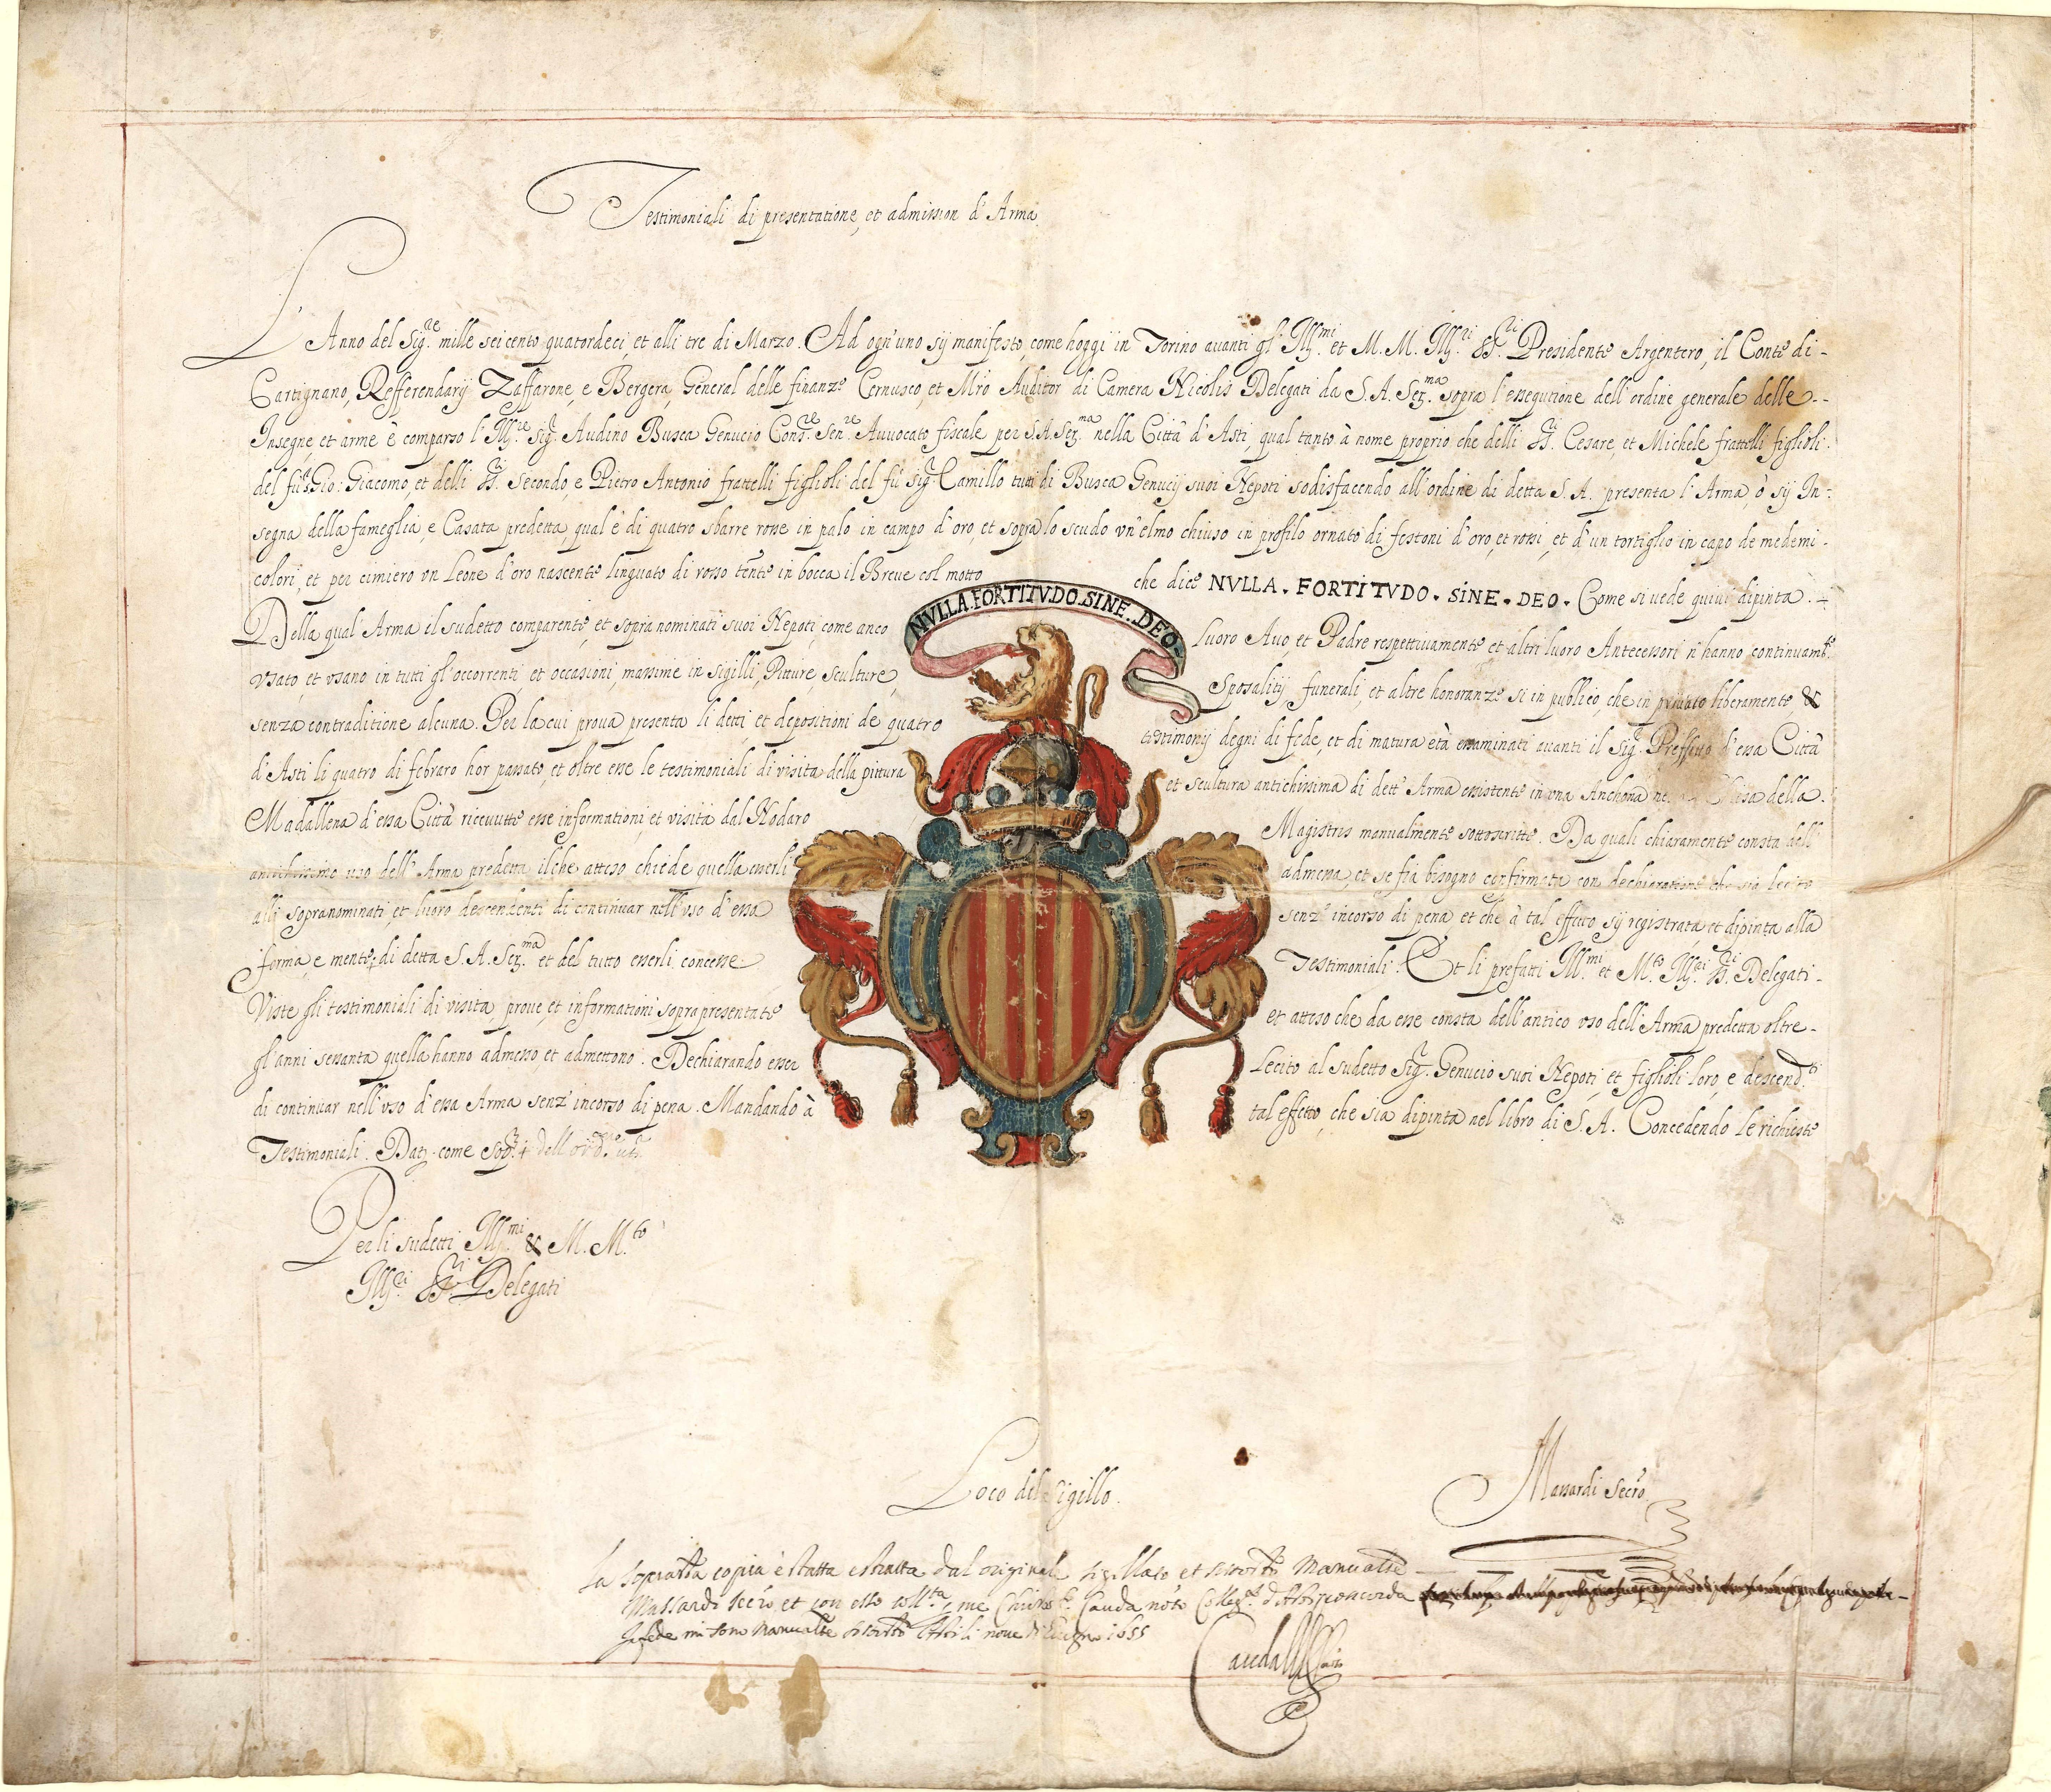 Testimoniali di presentatione, et admission d'Arma.
L'Anno del Sig.re mille seicento quatordeci, et alli tre di Marzo. Ad ogn'uno sij manifesto, come hoggi in Torino auanti gl'Ill.mi et M. M. Ill.ri SS.ri Presidente Argentero, il Conte di -
Cartignano, Refferendarij Zaffarone, e Bergera, General delle finanze Cernusco, et Mro Auditor di Camera Nicolis Delegati da S. A. Ser.ma sopra l'essegutione dell'ordine generale delle --
Insegne, et arme è comparso l'Ill.re Sig.r Audino Busca Genucio Cons.re Sen.re Auuocato fiscale per S.A. Ser.ma nella Città d'Asti, qual tanto à nome proprio, che delli SS.ri Cesare, et Michele fratelli figlioli.
del fù S.r Gio: Giacomo, et delli SS.ri Secondo, e Pietro Antonio frattelli figlioli del fù Sig.r Camillo tutti di Busca Genucij suoi Nepoti sodisfacendo all'ordine di detta S. A. presenta l'Arma, ò sij In:
segna della fameglia, e Casata predetta, qual è di quatro sbarre rosse in palo in campo d'oro, et sopra lo scudo un'elmo chiuso in profilo ornato di festoni d'oro, et rossi, et d'un tortiglio in capo de medemi -
colori, et per cimiero vn Leone d'oro nascente linguato di rosso tente in bocca il Breue col motto che dice NVLLA. FORTITVDO. SINE. DEO. Come si uede quiui dipinta. -
NVLLA.FORTITVDO.SINE.DEO
Della qual'Arma il sudetto comparente, et sopra nominati suoi Nepoti, come anco luoro Auo et Padre respettiuamente et altri luoro Antecessori n'hanno continuam.te
vsato, et vsano in tutti gl'occorrenti, et occasioni, massime in sigilli, Pitture, sculture, Sposalitij, funerali, et altre honoranze si in publico, che in priuato liberamente &
senza contraditione alcuna. Per la cui prova presenta li detti, et depositioni de quatro testimonij degni di fede, et di matura età essaminati auanti il Sig.r Preffetto d'essa Città
d'Asti li quatro di febraro hor passato, et oltre esse le testimoniali di visita della pittura et scultura antichissima di dett'Arma essistente in vna Anchona ne Chiesa della.
Madallena d'essa Città riceuutte esse informationi, et visita dal Nodaro Magistris manualmente sottoscritte. Da quali chiaramente consta dell'
antichissimo uso dell'Arma predetta ilche atteso chiede quella esserli admessa, et se fia bisogno confirmata con dechiaratione che sia lecito
alli sopranominati, et luoro descendenti di continuar nell'vso d'essa senz'incorso di pena et che à tal effetto sij registrata, et dipinta alla
forma, e mente di detta S. A. Ser.ma et del tutto esserli concesse Testimoniali. Et li prefatti Ill.mi et M.to Ill.ri SS.ri Delegati -
Viste gli testimoniali di visita, proue, et informationi sopra presentate et atteso che da esse consta dell'antico vso dell'Arma predetta oltre -
gl'anni sessanta quella hanno admesso, et admettono: Dechiarando esser Lecito al sudetto Sig.r Genucio suoi Nepoti, et figlioli loro, e descend.ti
di continuar nell'vso d'essa Arma senz'incorso di pena. Mandando à tal effetto, che sia dipinta nel libro di S. A. Concedendo le richieste
Testimoniali. Dat. come sop.a
Per li sudetti Ill.mi & M. M.to
Ill.ri SS.ri Delegati
Loco del sigillo.
Massardi Secro
La sopra copia è statta estratta dal originale sigillato et manualte
Massardi secro, et con esso Cauda noto d'Asti concorda
In fede mi sono manualte Asti li noue di 1655
Cauda